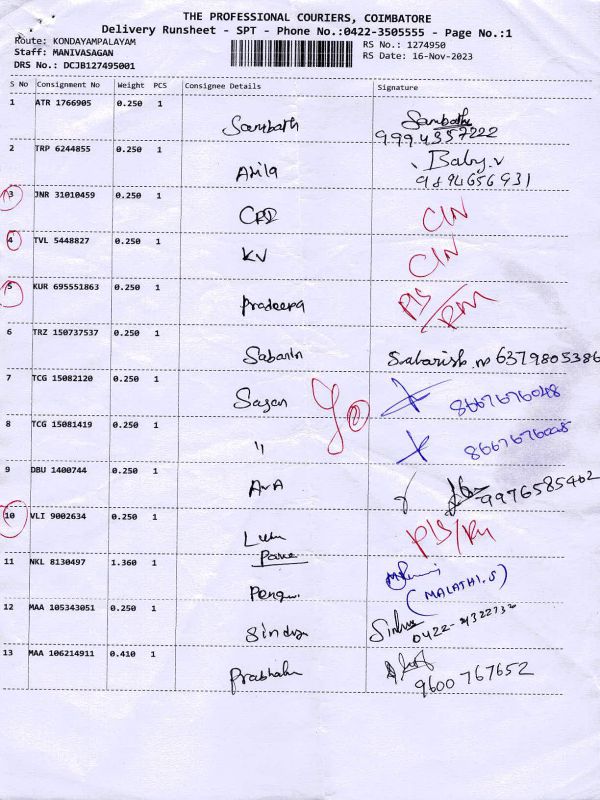 THE PROFESSIONAL COURIERS, COIMBATORE
Delivery Runsheet - SPT - Phone No.:0422-3505555 - Page No.:1
Route: KONDAYAMPALAYAM
Staff: MANIVASAGAN
DRS No.: DCJB127495001
RS No.: 1274950
RS Date: 16-Nov-2023
S No Consignment No Weight PCS Consignee Details Signature
1 ATR 1766905 0.250 1 Sambath Sambath
9994357222
2 TRP 6244855 0.250 1 Akila Baby.v
9894656931
3 JNR 31010459 0.250 1 CIN
4 TVL 5448827 0.250 1 KV CIN
5 KUR 695551863 0.250 1 Pradeepa PIS/RM
6 TRZ 150737537 0.250 1 Sabarish Sabarish 6379805386
7 TCG 15082120 0.250 1 Sagan 8667676048
8 TCG 15081419 0.250 1 " 8667676048
9 DBU 1400744 0.250 1 AVA 9976585462
10 VLI 9002634 0.250 1 PIS/RM
11 NKL 8130497 1.360 1 (MALATHI.S)
12 MAA 105343051 0.250 1 Sindhu Sindhu
13 MAA 106214911 0.410 1 Prabhaku
9600 767652